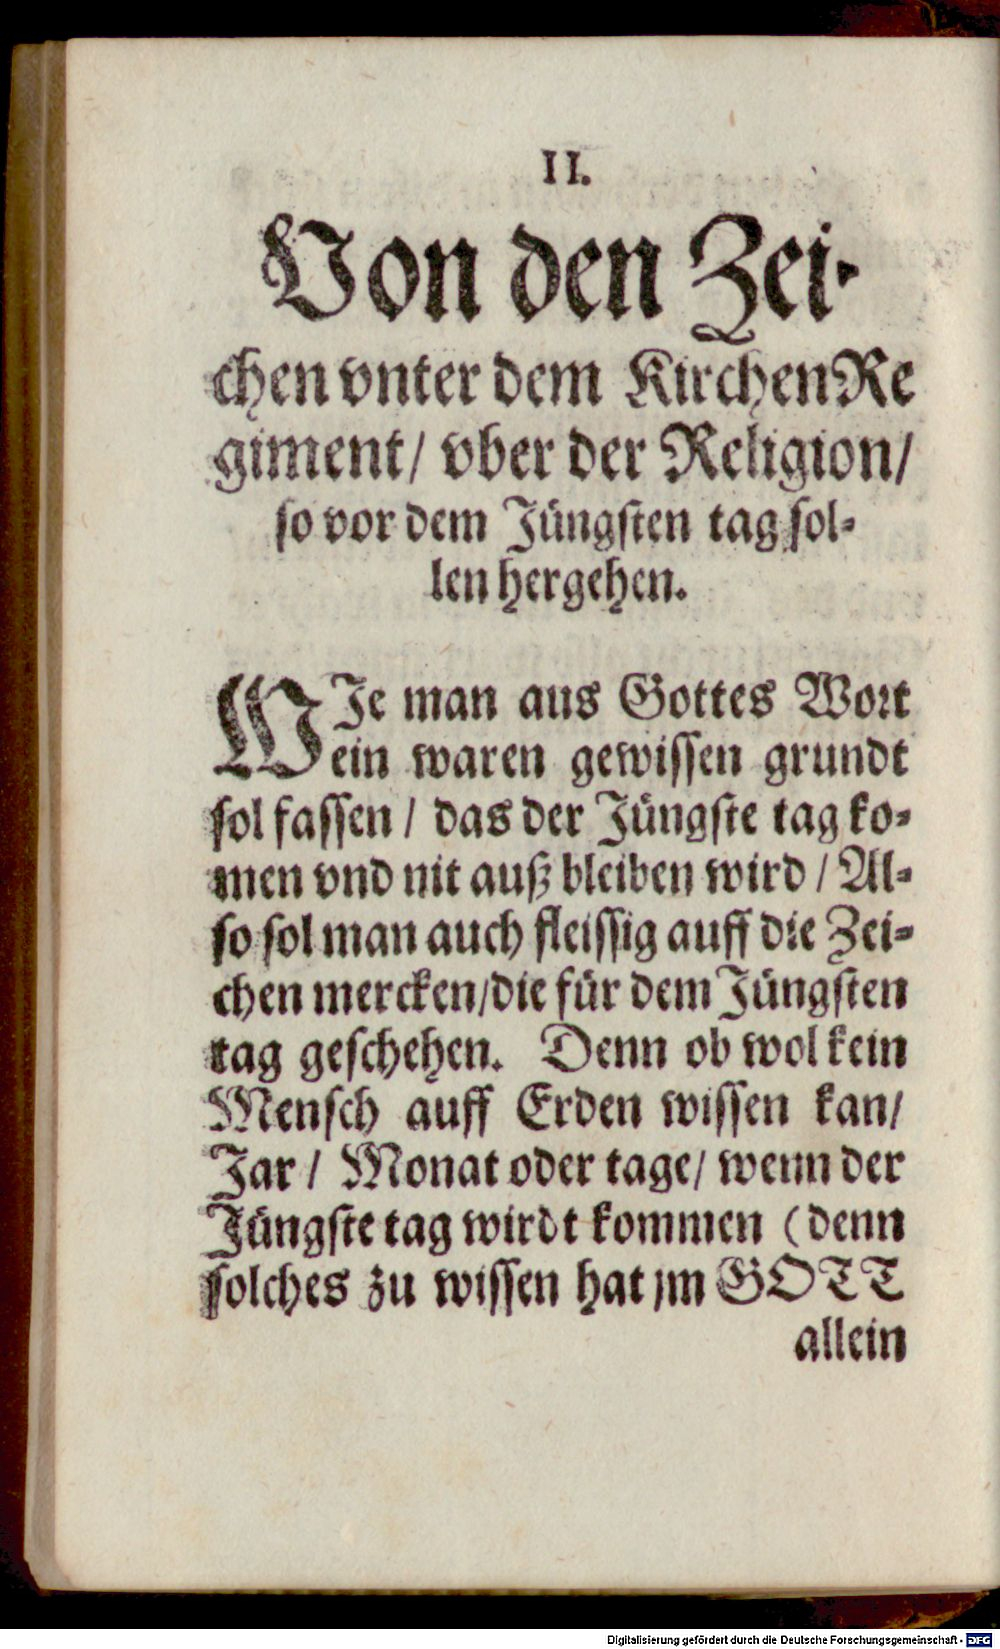 II.
Von den Zei-
chen vnter dem KirchenRe
giment/ vber der Religion/
so vor dem Jüngsten tag sol-
len hergehen.
WJe man aus Gottes Wort
ein waren gewissen grundt
sol fassen / das der Jüngste tag ko-
men vnd nit auß bleiben wird / Al-
so sol man auch fleissig auff die Zei-
chen mercken/die für dem Jüngsten
tag geschehen. Denn ob wol kein
Mensch auff Erden wissen kan/
Jar / Monat oder tage/ wenn der
Jüngste tag wirdt kommen (denn
solches zu wissen hat jm GOTT
allein
Digitalisierung gefördert durch die Deutsche Forschungsgemeinschaft - DFG